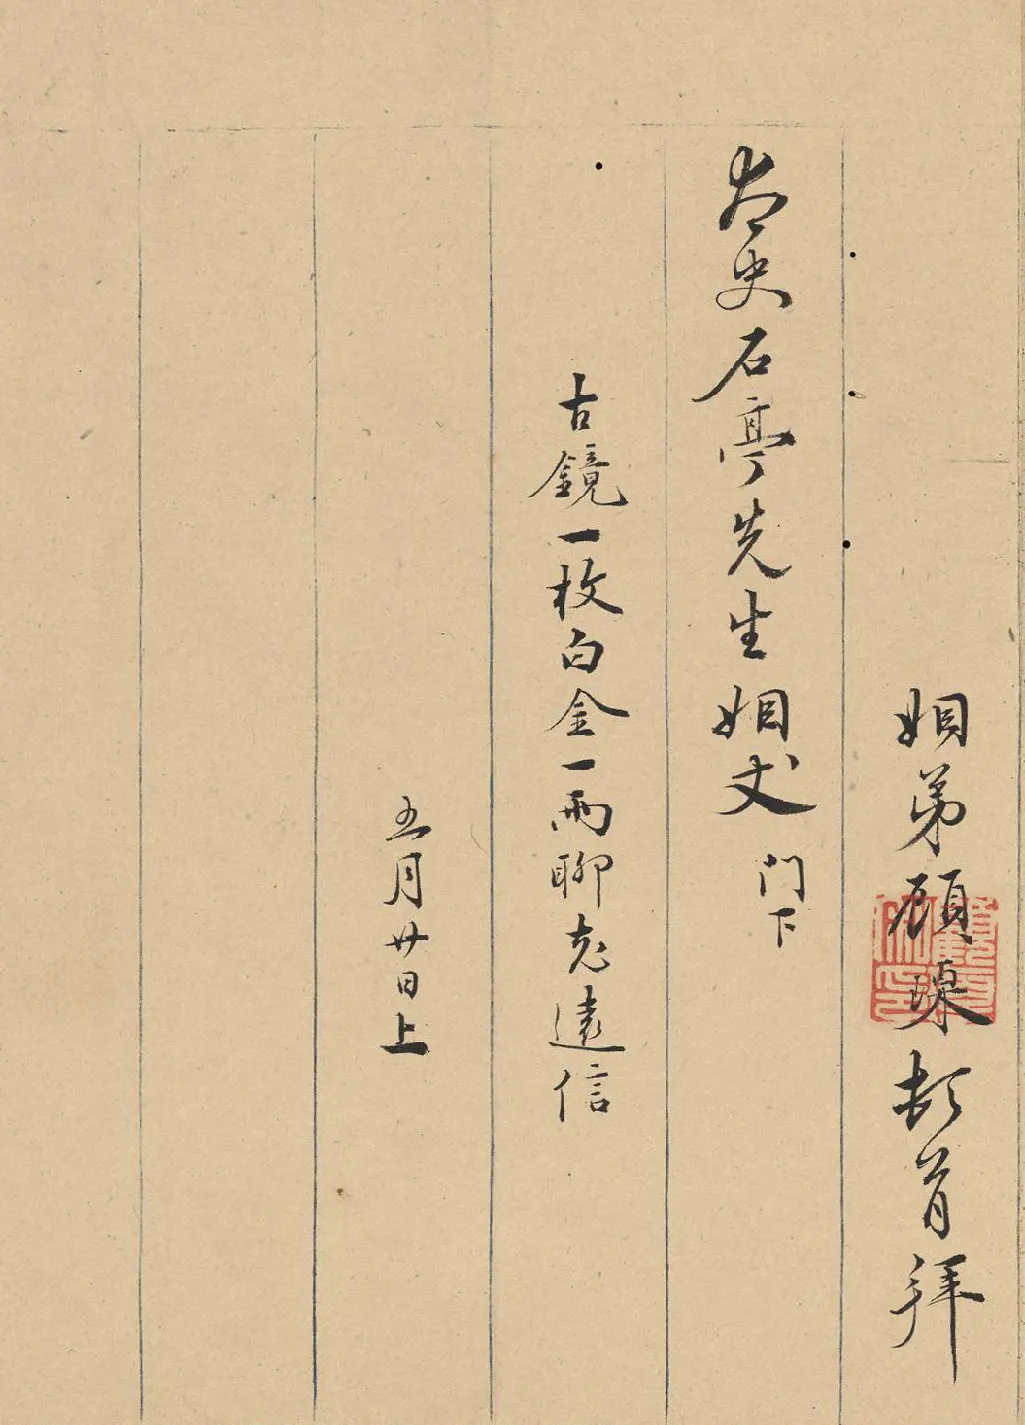 姻弟顧瑮頓首拜
太史石亭先生姻丈門下
古鏡一枚白金一兩聊志遠信
五月廿日上